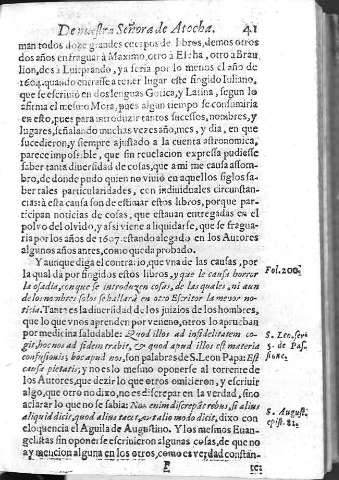 De nuestra Señora de Atocha. 41
man todos doze grandes cuerpos de libros, demos otros
dos años en fraguar à Maximo, otro à Eleha, otro à Brau
lion, dos à Luitprando, ya seria por lo menos el año de
1604. quando entrasse a tener lugar este fingido Iuliano,
que se escriuiò en dos lenguas Gotica, y Latina, segun lo
afirma el mesmo Mora, pues algun tiempo se consumiria
en esto, pues para introduzir tantos sucessos, nombres, y
lugares, señalando muchas vezes año, mes, y dia, en que
sucedieron, y siempre ajustado a la cuenta astronomica,
parece impossible, que sin reuelacion expressa pudiesse
saber tanta diuersidad de cosas, que a mi me causa assom-
bro, de donde pudo quien no viuiò en aquellos siglos sa-
ber tales particularidades, con indiuiduales circunstan-
cias: à esta causa son de estimar estos libros, porque par-
ticipan noticias de cosas, que estauan enterradas en el
poluo del oluido, y assi viene a liquidarse, que se fragua-
ria por los años de 1607. estando alegado en los Autores
algunos años antes, como queda probado.
Y aunque diga el contrario, que vna de las causas, por
la qual da por fingidos estos libros, y que le causa horror
la osadia, con que se introduzen cosas, de las quales, ni aun
de los nombres solos se hallarà en otro Escritor la menor no-
ticia. Tanta es la diuersidad de los juizios de los hombres,
que lo que vnos aprenden por veneno, otros lo aprueban
por medicina saludable: Quod illos ad infidelitatem co-
git, hoc nos ad fidem trahit, & quod apud illos est materia
confusionis, hoc apud nos, son palabras de S. Leon Papa: Est
causa pietatis; y no es lo mesmo oponerse al torrente de
los Autores, que dezir lo que otros omitieron, y escriuir
algo, que otro no dixo, no es discrepar en la verdad, sino
aclarar lo que no se sabia: Non enim discrepat rebus, si alius
aliquid dicit, quod alius tacet, aut alio modo dicit, dixo con
eloquencia el Aguila de Augustino. Y los mesmos Euan-
gelistas sin oponerse escriuieron algunas cosas, de que no
ay mencion alguna en los otros, como es verdad constan-
F
Fol. 200.
S. Leo. ser.
5. de Pas-
sione.
S. August.
epist. 82.